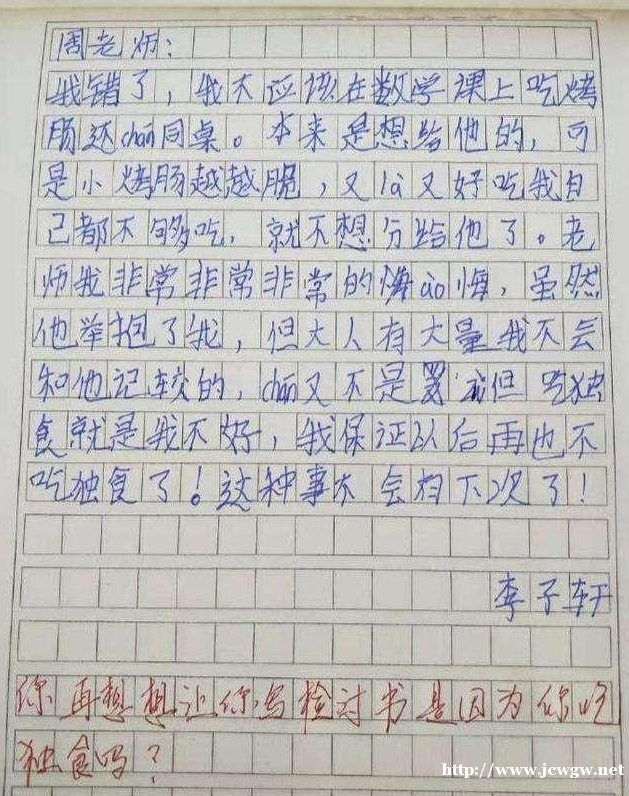 周老师:
我错了,我不应该在数学课上吃烤
肠还chán同桌。本来是想给他的,可
是小烤肠越越脆,又là又好吃我自
己都不够吃,就不想分给他了。老
师我非常非常非常的悔ào悔,虽然
他举抱了我,但大人有大量我不会
和他记较的,chán又不是罪 但吃独
食就是我不好,我保证以后再也不
吃独食了!这种事不会有下次了!
李子轩
你再想想让你写检讨书是因为你吃
独食吗?
http://www.jcwgw.net